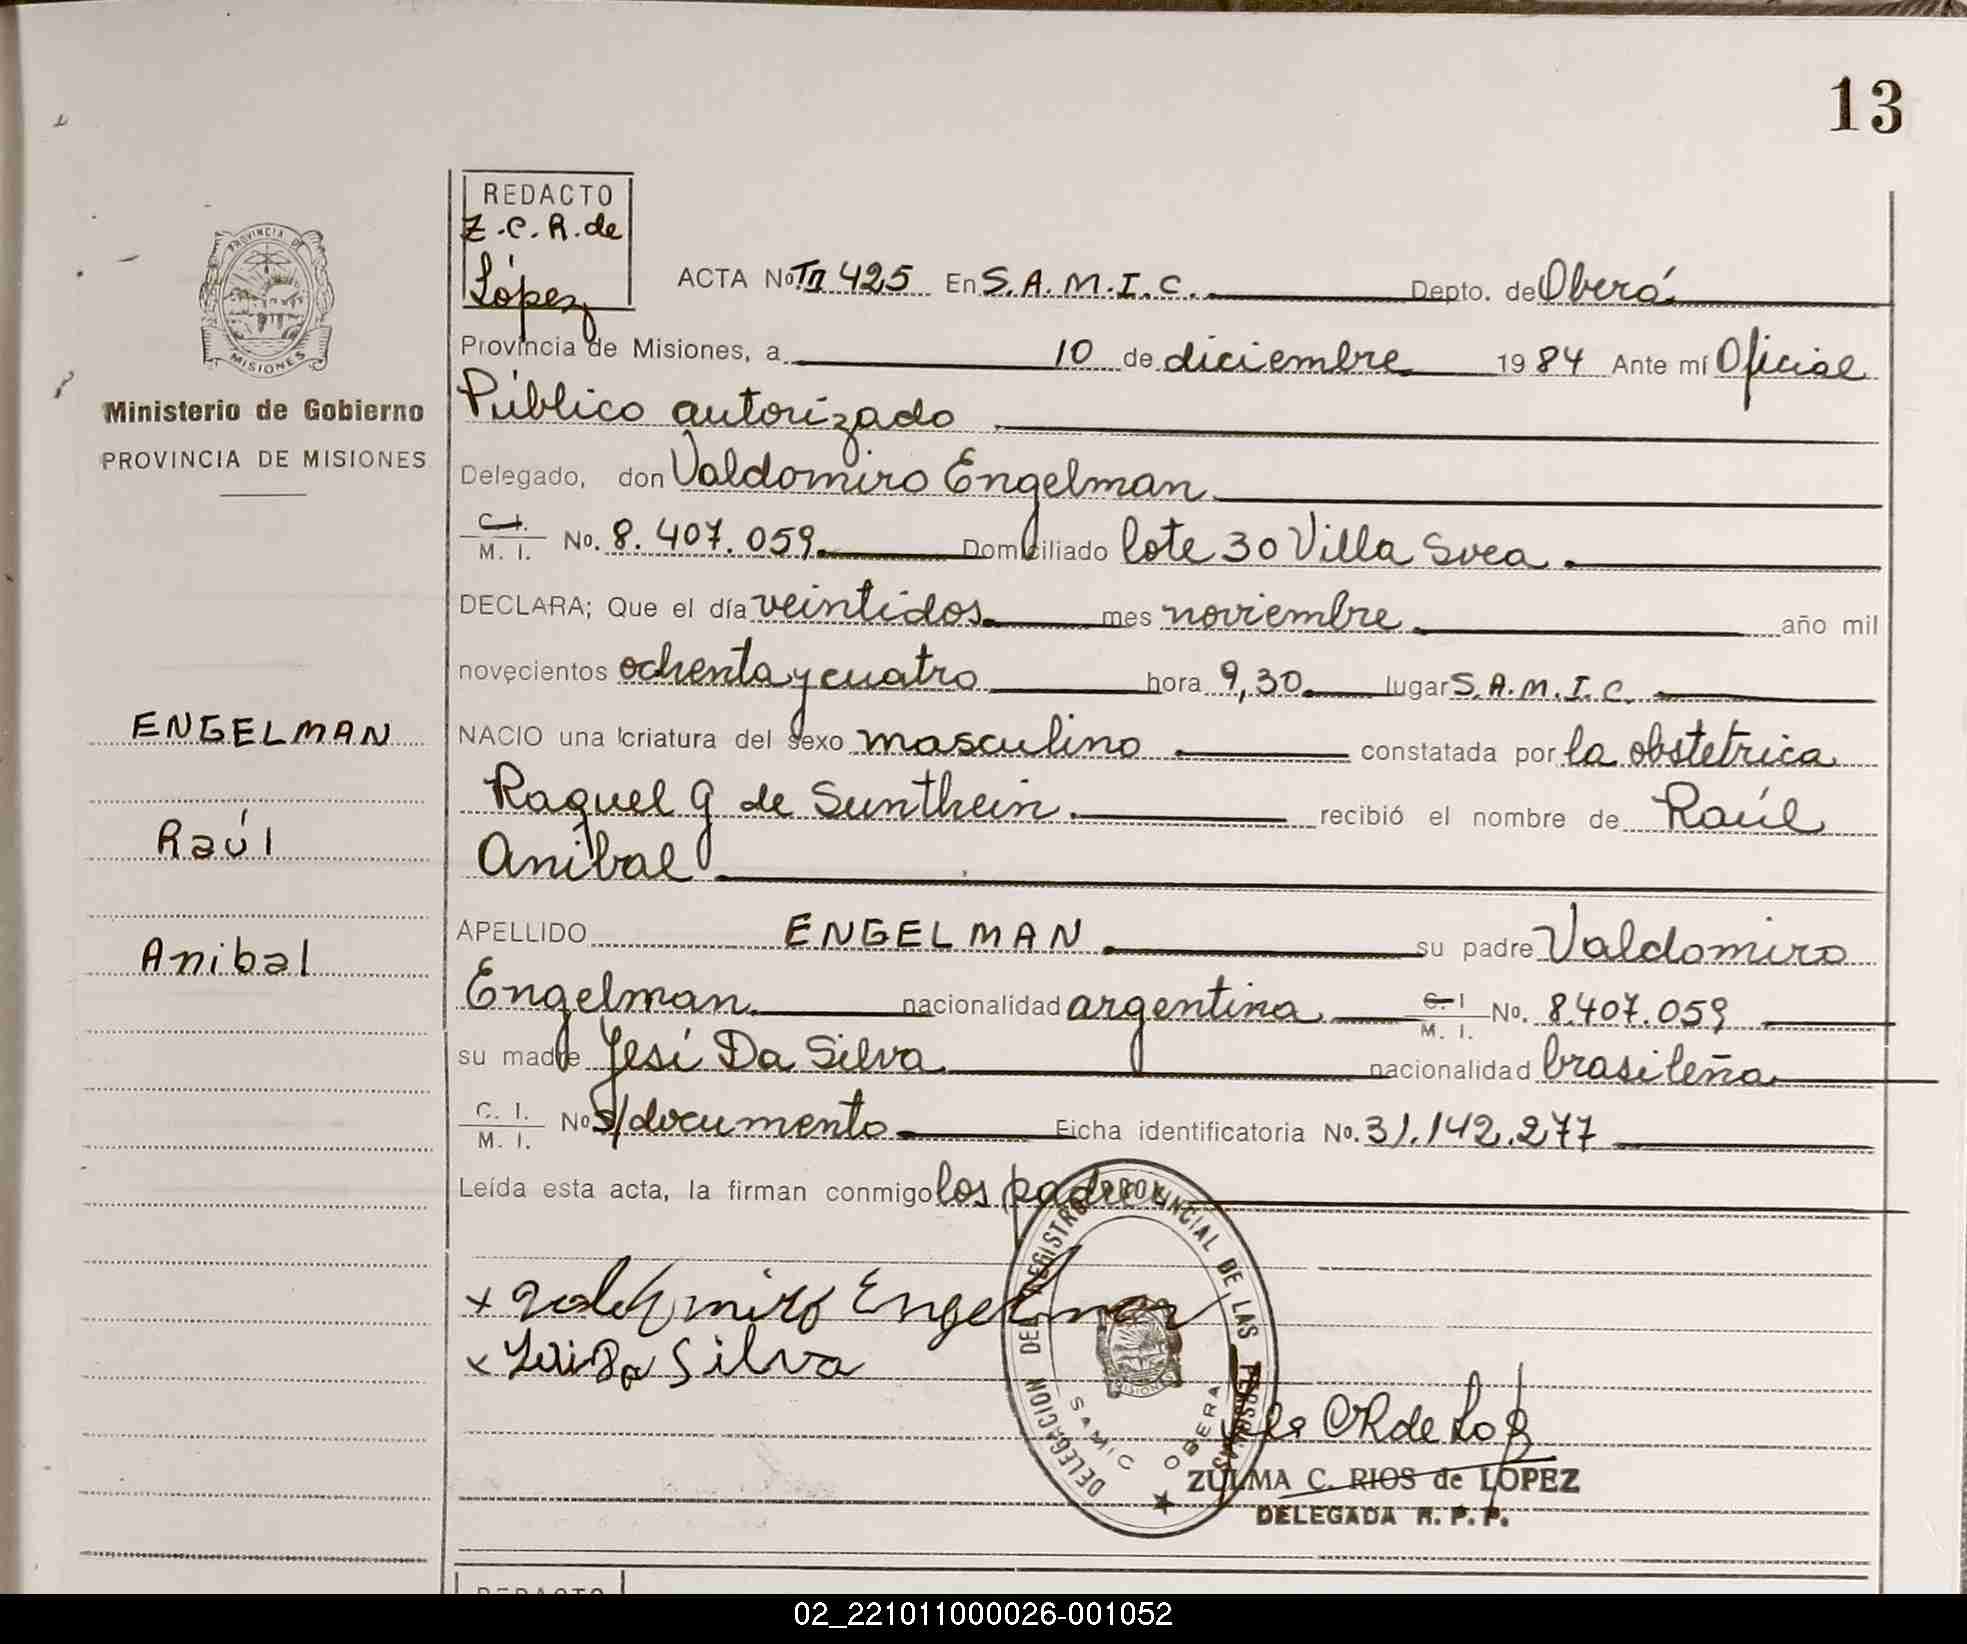 13
REDACTO
Z.C.R. de
López
ACTA No Tº II 425 En S.A.M.I.C. Depto. de Oberá
Provincia de Misiones, a 10 de diciembre 1984 Ante mí Oficial
Público autorizado
Delegado, don Valdomiro Engelman
C. I.
M. I. No. 8.407.059 Domiciliado lote 30 Villa Svea
DECLARA; Que el día veintidos mes noviembre año mil
novecientos ochenta y cuatro hora 9,30 lugar S.A.M.I.C.
NACIO una criatura del sexo masculino constatada por la obstetrica
Raquel G de Sunthein recibió el nombre de Raúl
Anibal
APELLIDO ENGELMAN su padre Valdomiro
Engelman nacionalidad argentina C. I
M. I. No. 8.407.059
su madre Jesí Da Silva nacionalidad brasileña
C. I.
M. I. No s/documento Ficha identificatoria No. 31.142.277
Leída esta acta, la firman conmigo los padres
x Valdomiro Engelman
x Da Silva
DELEGACION DEL REGISTRO PROVINCIAL DE LAS PERSONAS
SAMIC OBERA
MISIONES
ZULMA C. RIOS de LOPEZ
DELEGADA R. P. P.
PROVINCIA DE
MISIONES
Ministerio de Gobierno
PROVINCIA DE MISIONES
ENGELMAN
Raúl
Anibal
REDACTO
02_221011000026-001052